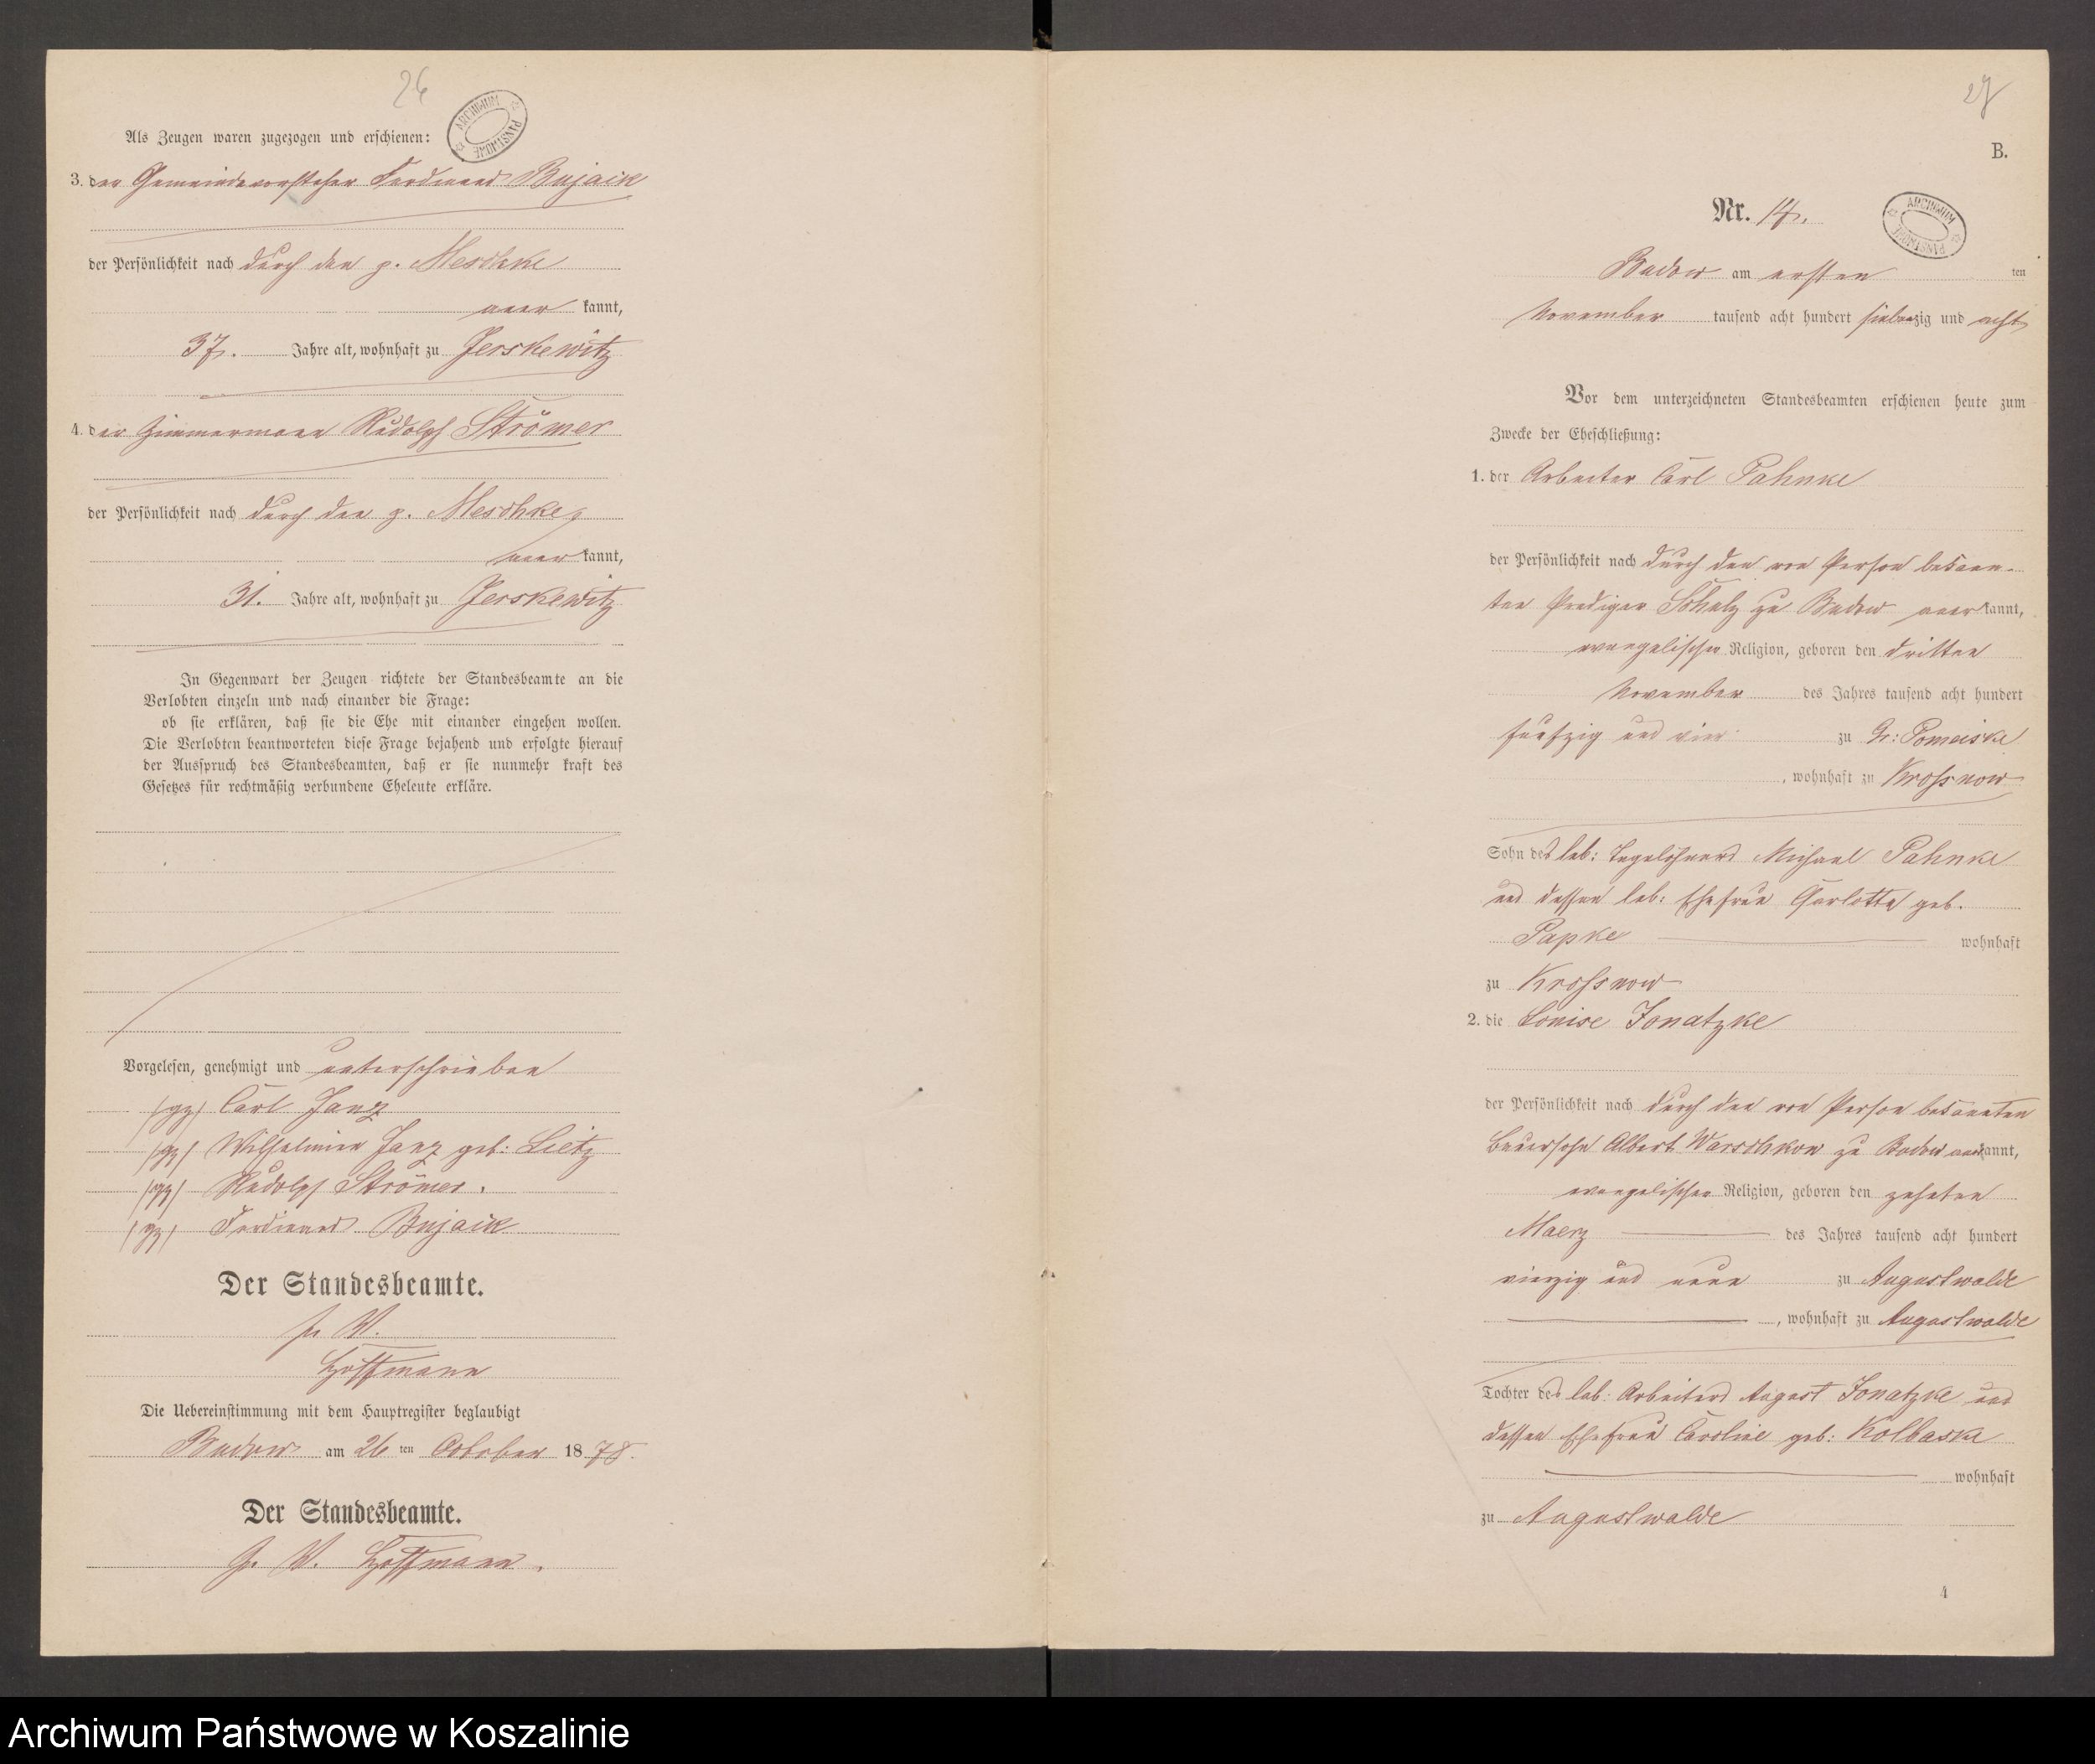 26
ARCHIWUM PAŃSTWOWE
Als Zeugen waren zugezogen und erschienen:
3. der Gemeindevorsteher Ferdinand Bujack
der Persönlichkeit nach durch den p. Meschke
aner kannt,
37. Jahre alt, wohnhaft zu Jerskewitz
4. der Zimmermann Rudolph Strömer
der Persönlichkeit nach durch den p. Meschke,
aner kannt,
31. Jahre alt, wohnhaft zu Jerskewitz
In Gegenwart der Zeugen richtete der Standesbeamte an die
Verlobten einzeln und nach einander die Frage:
ob sie erklären, daß sie die Ehe mit einander eingehen wollen.
Die Verlobten beantworteten diese Frage bejahend und erfolgte hierauf
der Ausspruch des Standesbeamten, daß er sie nunmehr kraft des
Gesetzes für rechtmäßig verbundene Eheleute erkläre.
Vorgelesen, genehmigt und unterschrieben
(gz) Carl Janz
(gz) Wilhelmine Janz geb: Lietz
(gz) Rudolph Strömer.
(gz) Ferdinand Bujack
Der Standesbeamte.
In V.
Hoffmann
Die Uebereinstimmung mit dem Hauptregister beglaubigt
Budow am 26 ten October 1878.
Der Standesbeamte.
In V. Hoffmann.
27
B.
Nr. 14.
ARCHIWUM PAŃSTWOWE
Budow am ersten ten
November tausend acht hundert siebenzig und acht
Vor dem unterzeichneten Standesbeamten erschienen heute zum
Zwecke der Eheschließung:
1. der Arbeiter Carl Pahnke
der Persönlichkeit nach durch den von Person bekann-
ten Prediger Schulz zu Budow aner kannt,
evangelischer Religion, geboren den dritten
November des Jahres tausend acht hundert
fünfzig und vier zu Gr: Pomeiske
, wohnhaft zu Krossnow
Sohn des leb: Tagelöhners Michael Pahnke
und dessen leb: Ehefrau Charlotte geb.
Papke wohnhaft
zu Krossnow
2. die Louise Jonatzke
der Persönlichkeit nach durch den von Person bekannten
Bauersohn Albert Warschkow zu Budow aner kannt,
evangelischer Religion, geboren den zehnten
Maerz des Jahres tausend acht hundert
vierzig und neun zu Augustwalde
, wohnhaft zu Augustwalde
Tochter des leb: Arbeiters August Jonatzke und
dessen Ehefrau Caroline geb: Kolbaska
wohnhaft
zu Augustwalde
4
Archiwum Państwowe w Koszalinie